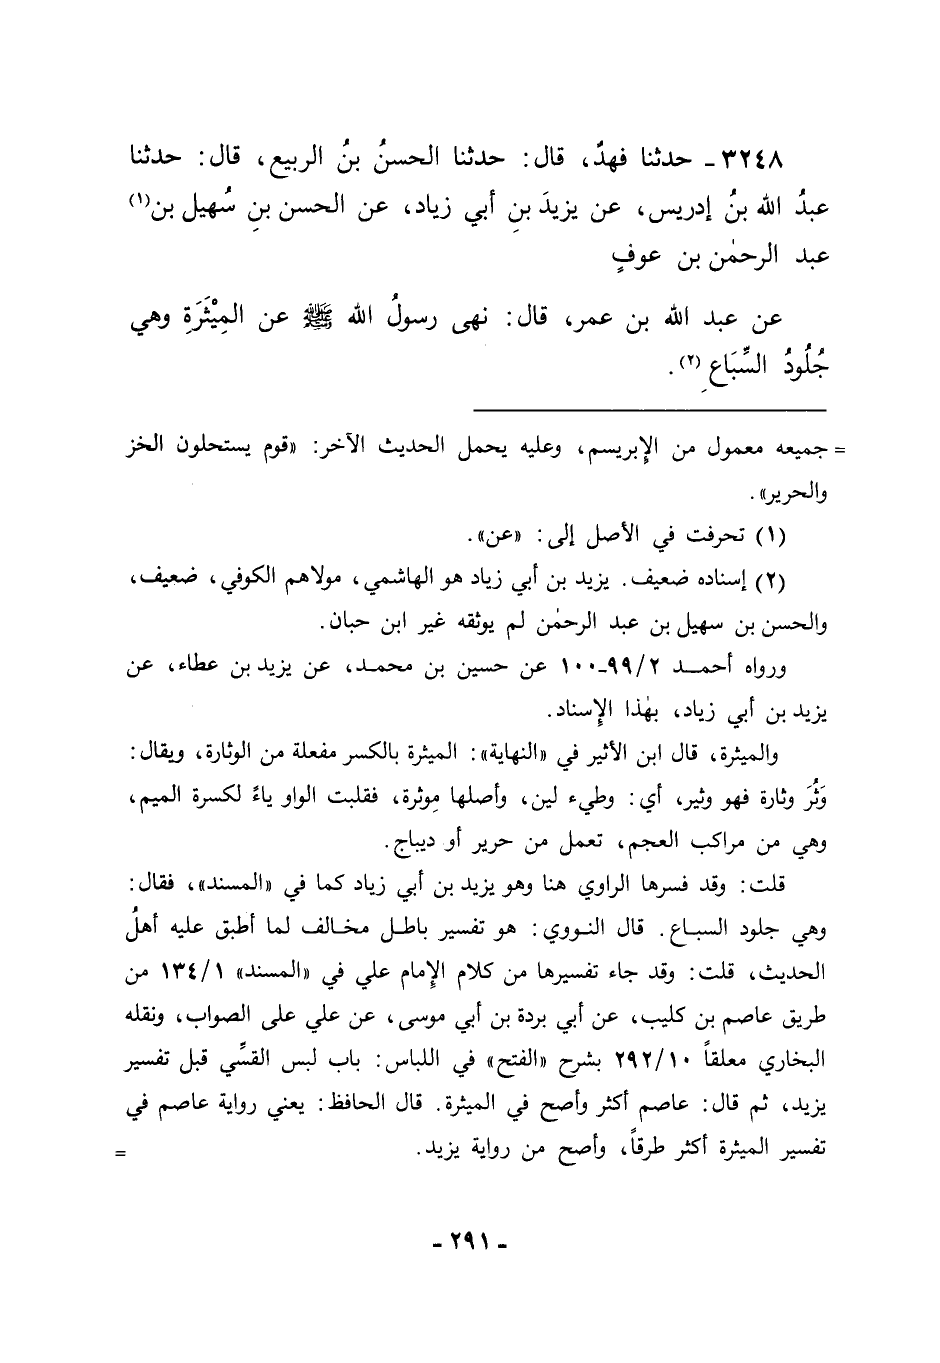 ٣٢٤٨ - حدثنا فهدٌ، قال: حدثنا الحسنُ بنُ الربيع، قال: حدثنا
عبدُ الله بنُ إدريس، عن يزيدَ بنِ أبي زياد، عن الحسن بنِ سُهيل بن(١)
عبد الرحمٰن بن عوفٍ
عن عبد الله بن عمر، قال: نهى رسولُ الله ﷺ عن المِيْثَرَةِ وهي
جُلُودُ السِّبَاعِ(٢).
= جميعه معمول من الإبريسم، وعليه يحمل الحديث الآخر: «قوم يستحلون الخز
والحرير».
(١) تحرفت في الأصل إلى: «عن».
(٢) إسناده ضعيف. يزيد بن أبي زياد هو الهاشمي، مولاهم الكوفي، ضعيف،
والحسن بن سهيل بن عبد الرحمٰن لم يوثقه غير ابن حبان.
ورواه أحمد ٩٩/٢-١٠٠ عن حسين بن محمد، عن يزيد بن عطاء، عن
يزيد بن أبي زياد، بهٰذا الإسناد.
والميثرة، قال ابن الأثير في «النهاية»: الميثرة بالكسر مفعلة من الوثارة، ويقال:
وَثُرَ وثارة فهو وثير، أي: وطيء لين، وأصلها مِوثرة، فقلبت الواو ياءً لكسرة الميم،
وهي من مراكب العجم، تعمل من حرير أو ديباج.
قلت: وقد فسرها الراوي هنا وهو يزيد بن أبي زياد كما في «المسند»، فقال:
وهي جلود السباع. قال النووي: هو تفسير باطل مخالف لما أطبق عليه أهلُ
الحديث، قلت: وقد جاء تفسيرها من كلام الإمام علي في «المسند» ١٣٤/١ من
طريق عاصم بن كليب، عن أبي بردة بن أبي موسى، عن علي على الصواب، ونقله
البخاري معلقاً ٢٩٢/١٠ بشرح «الفتح» في اللباس: باب لبس القسِّي قبل تفسير
يزيد، ثم قال: عاصم أكثر وأصح في الميثرة. قال الحافظ: يعني رواية عاصم في
تفسير الميثرة أكثر طرقاً، وأصح من رواية يزيد. =
- ٢٩١ -